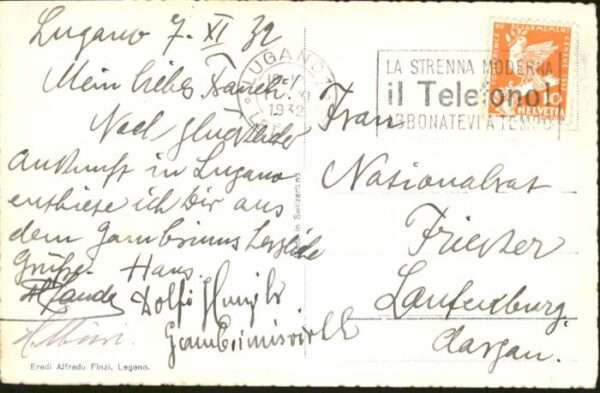 Lugano 7. XI 32
Mein liebes
Nach glücklicher
Ankunft in Lugano
entbiete ich Dir aus
dem Gambrinus herzliche
Grüsse. Hans
Dolfi
LUGANO
XI
1932
LA STRENNA MODERNA
il Telefono!
ABBONATEVI A TEMPO
10
HELVETIA
Frau
Nationalrat
Triester
Laufenburg.
Aargau.
in Switzerland
Eredi Alfredo Finzi, Lugano.